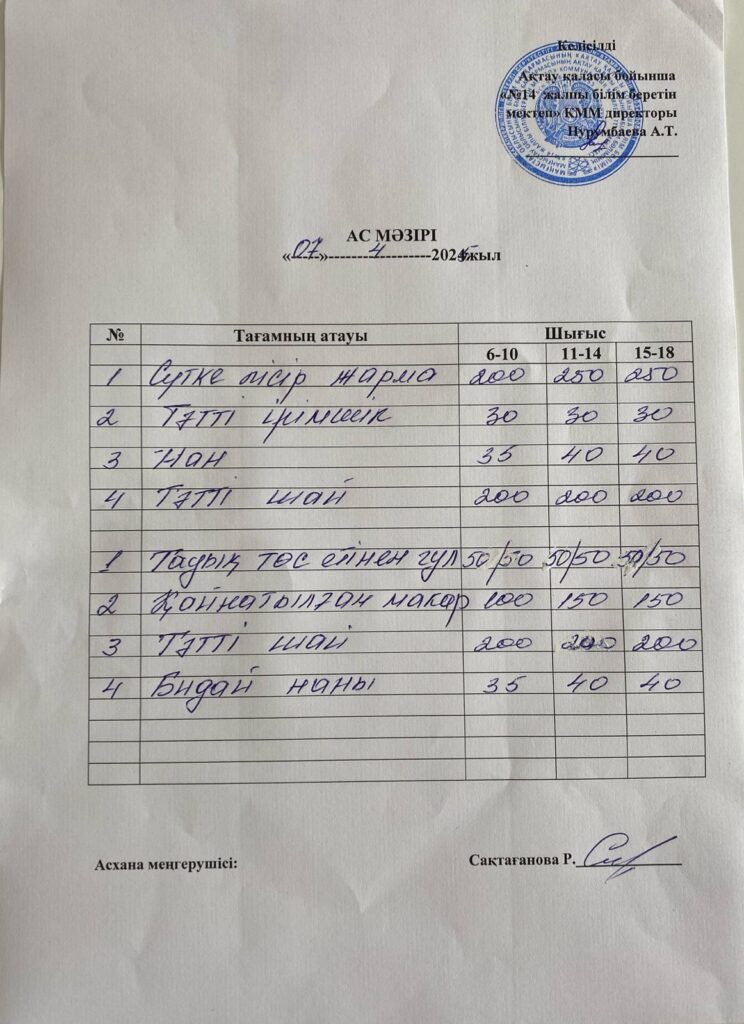 Келісілді
Ақтау қаласы бойынша
«№14 жалпы білім беретін
мектеп» КММ директоры
Нурумбаева А.Т.
АС МӘЗІРІ
«07»-------4-----------2025 жыл
№ Тағамның атауы Шығыс
6-10 11-14 15-18
1 Сүтке пісір жарма 200 250 250
2 Тәтті ірімшік 30 30 30
3 Нан 35 40 40
4 Тәтті шай 200 200 200
1 Тауық төс етінен гул 50/50 50/50 50/50
2 Қайнатылған макар 100 150 150
3 Тәтті шай 200 200 200
4 Бидай наны 35 40 40
Асхана меңгерушісі: Сақтағанова Р.